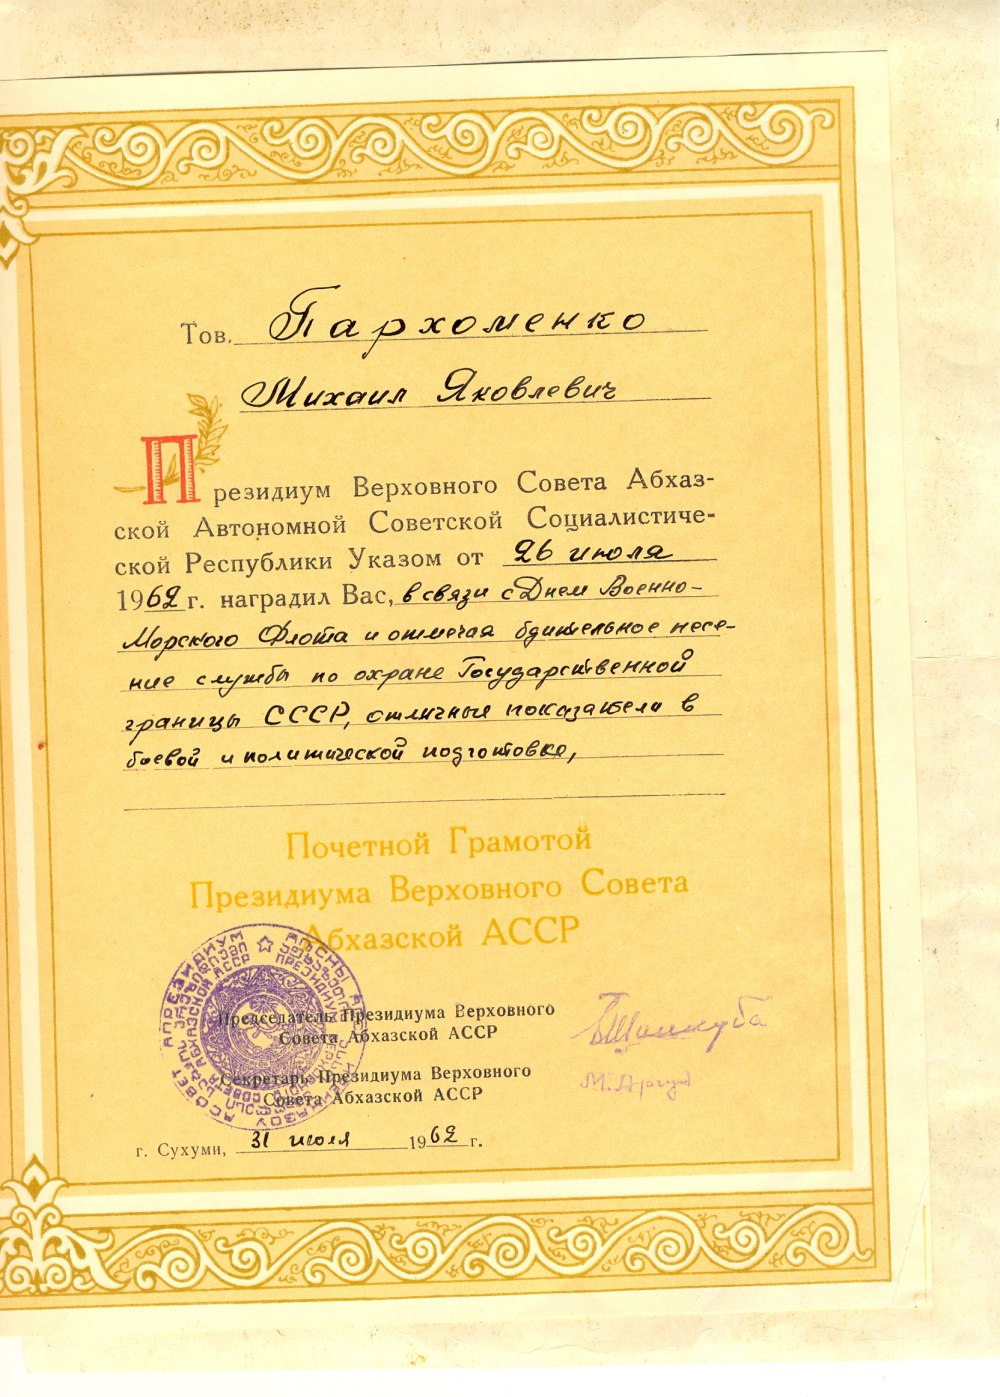 Тов. Пархоменко
Михаил Яковлевич
Президиум Верховного Совета Абхаз-
ской Автономной Советской Социалистиче-
ской Республики Указом от 26 июля
1962 г. наградил Вас, в связи с Днем Военно-
Морского Флота и отмечая бдительное несе-
ние службы по охране Государственной
границы СССР, отличные показатели в
боевой и политической подготовке,
Почетной Грамотой
Президиума Верховного Совета
Абхазской АССР
Председатель Президиума Верховного
Совета Абхазской АССР
Б Шинкуба
Секретарь Президиума Верховного
Совета Абхазской АССР
г. Сухуми, 31 июля 1962 г.